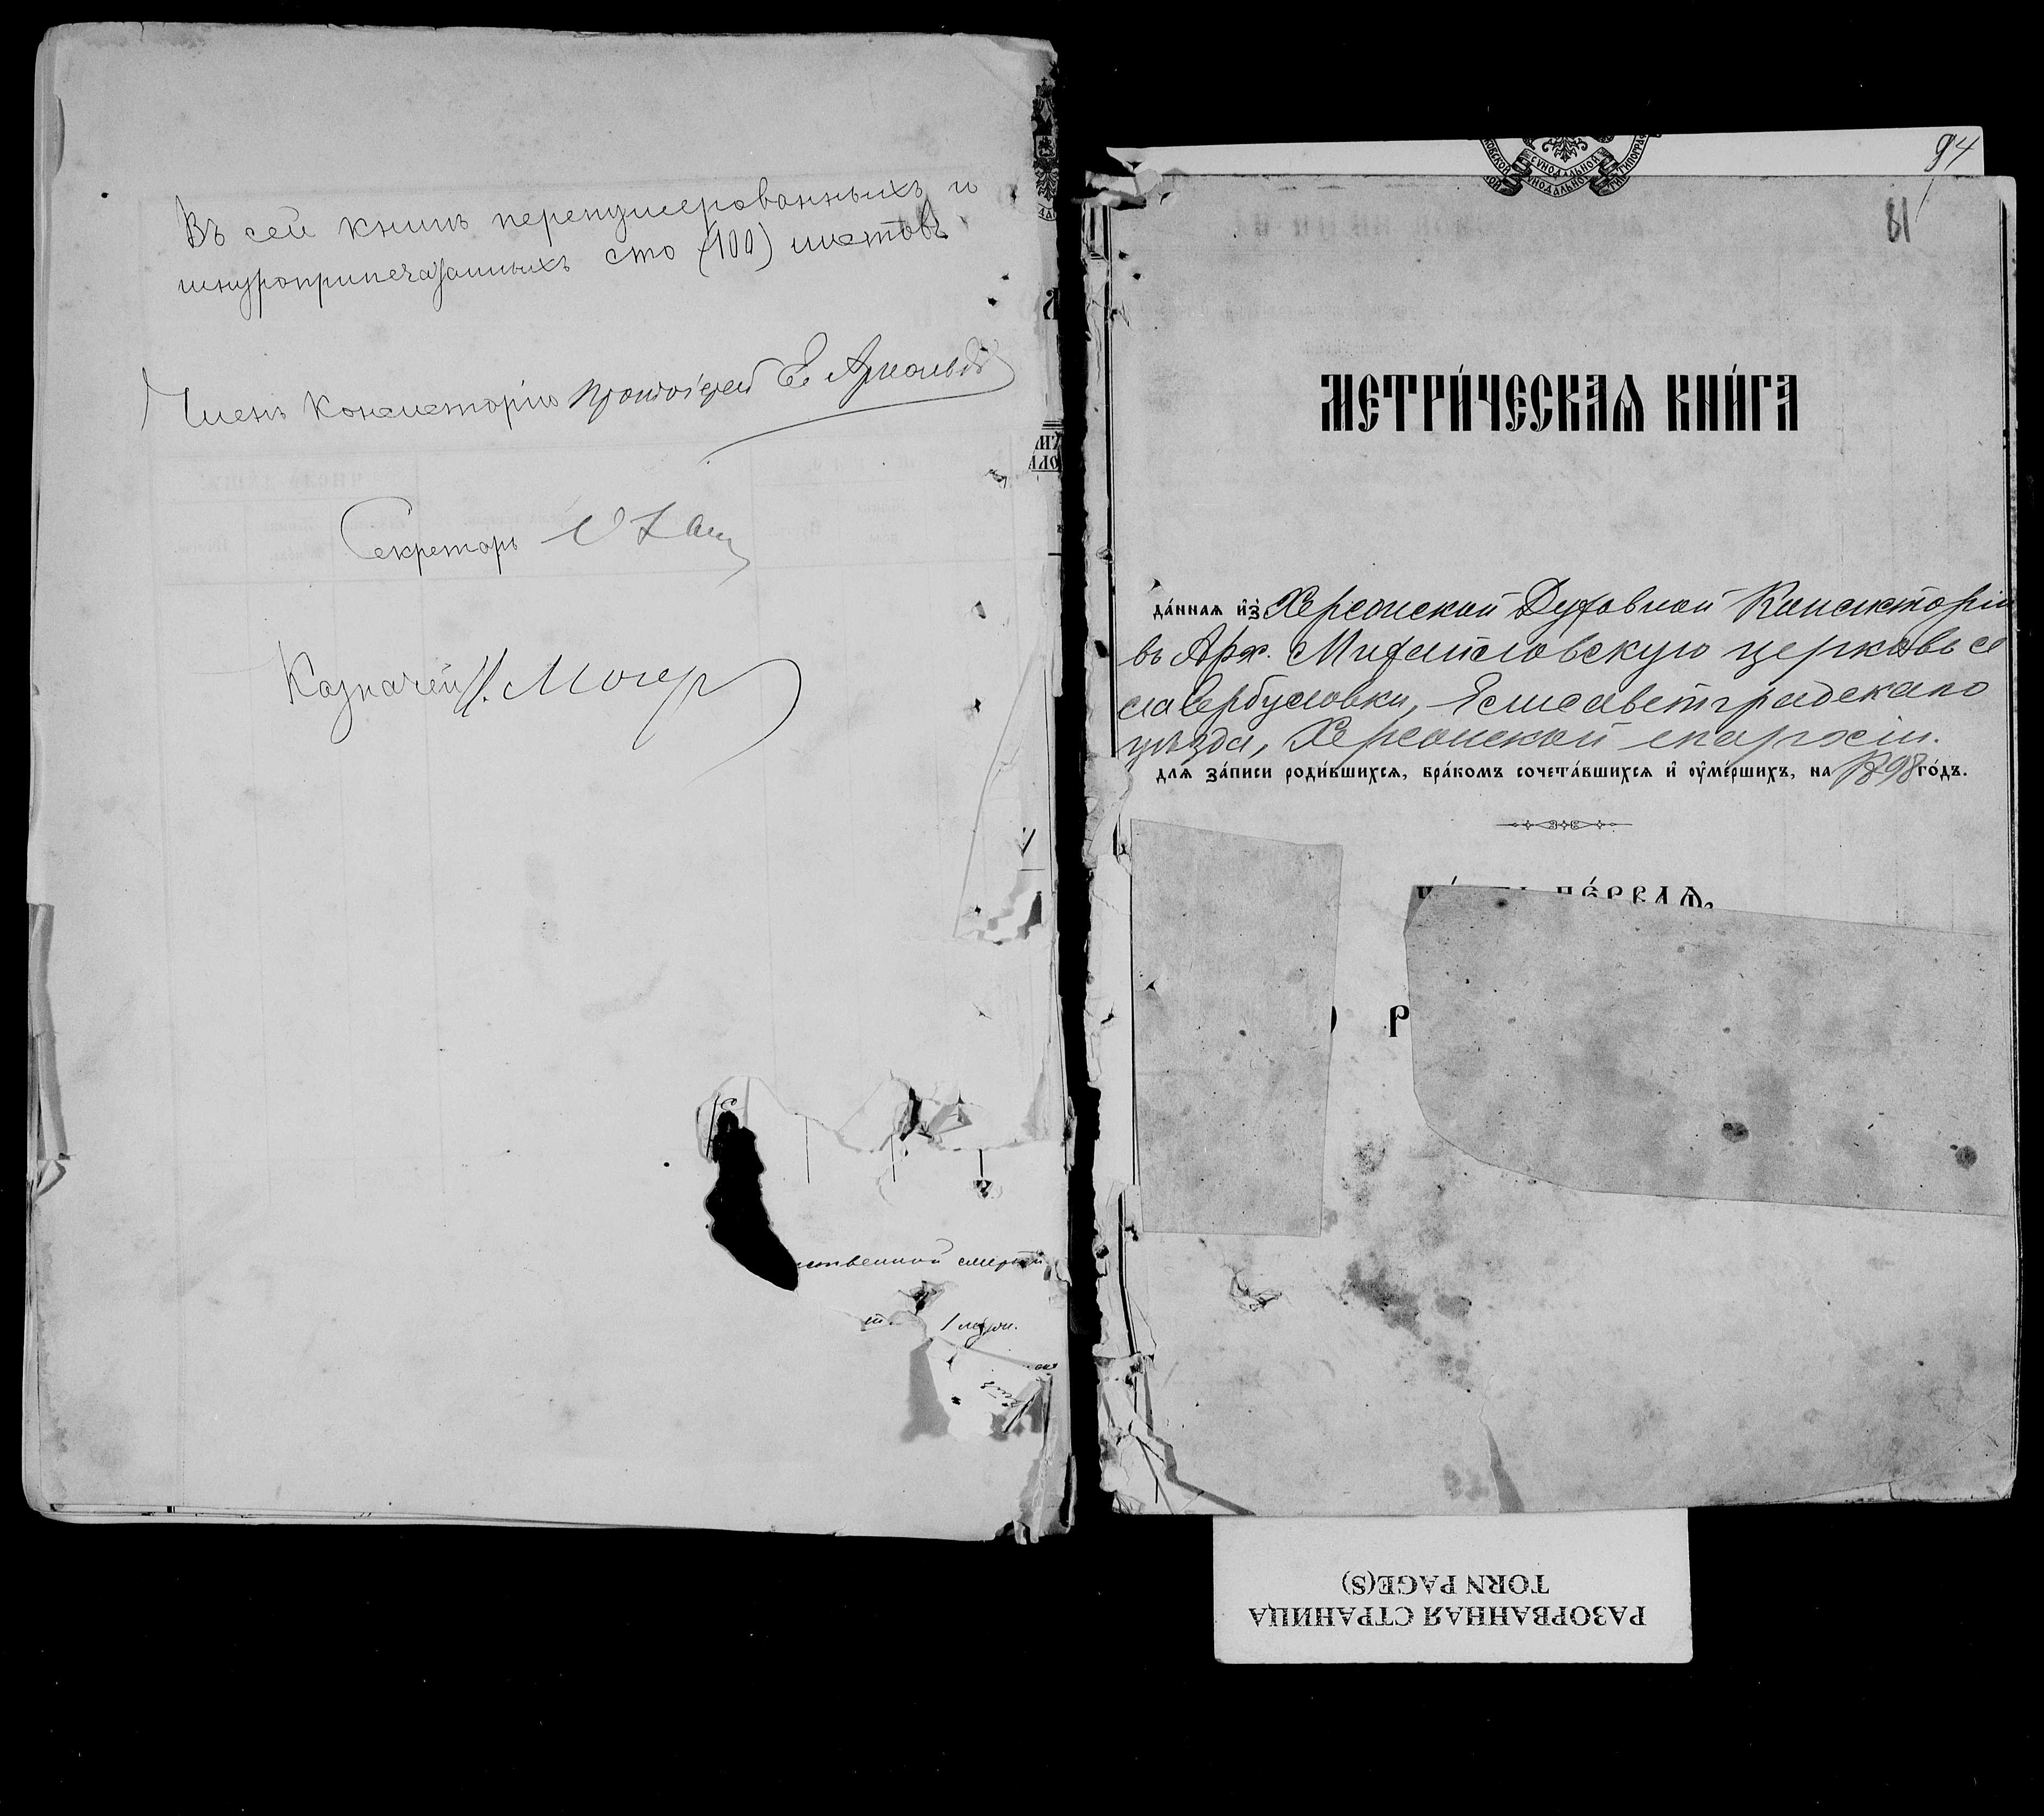 Въ сей книгѣ перенумерованныхъ и
шнуроприпечатанныхъ сто (100) листовъ
Членъ Консисторіи Протоіерей
Секретарь
Казначей
ственной смерти
94
81
МЕТРИ́ЧЕСКАѦ КНИ́ГА
да́ннаѧ и҆з̾ Херсонской Духовной Консисторіи
въ Арх. Михайловскую церковь се
ла Вербуловки, Елисаветградскаго
уѣзда, Херсонской епархіи.
длѧ за́писи роди́вшихсѧ, бра́комъ сочета́вшихсѧ и҆ ᲂу҆ме́ршихъ, на 1898 го́дъ.
ПЕ́РВАѦ,
Р
РАЗОРВАННАЯ СТРАНИЦА
TORN PAGE(S)